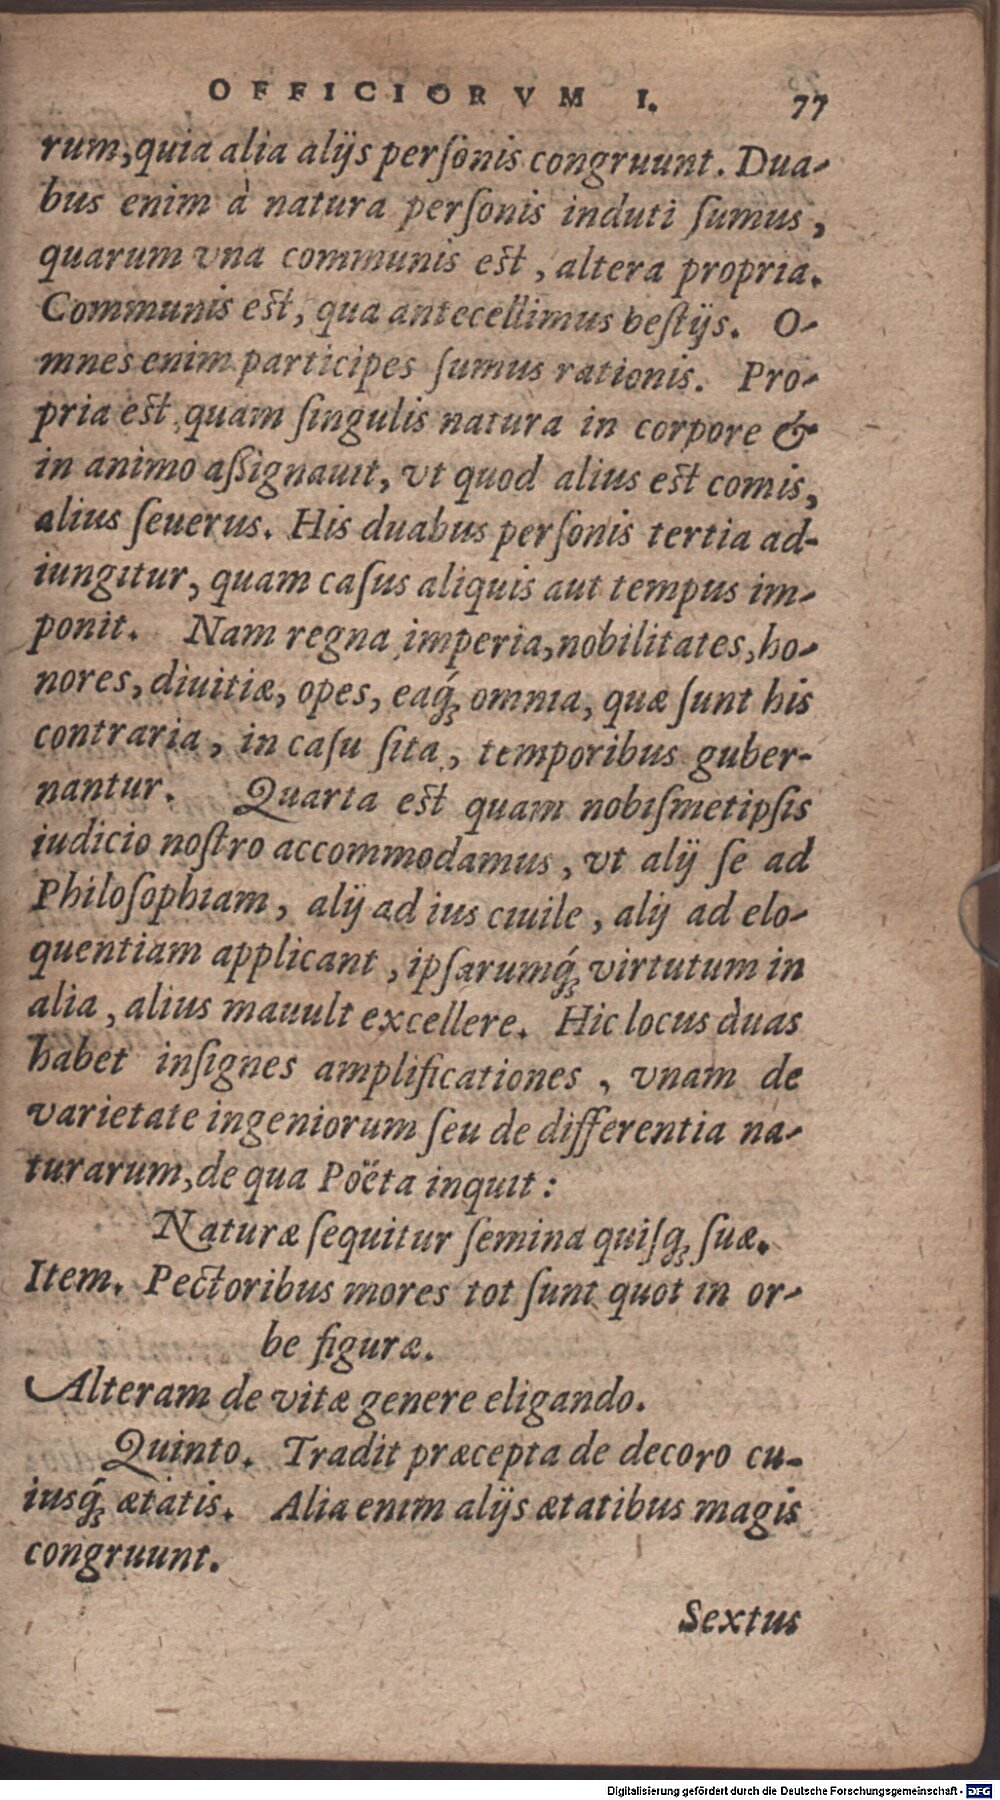 OFFICIORVM I. 77
rum, quia alia alijs perſonis congruunt. Dua-
bus enim à natura perſonis induti ſumus,
quarum vna communis est, altera propria.
Communis est, qua antecellimus beſtijs. O-
mnes enim participes ſumus rationis. Pro-
pria est, quam ſingulis natura in corpore &
in animo aſſignauit, vt quod alius est comis,
alius ſeuerus. His duabus perſonis tertia ad-
iungitur, quam caſus aliquis aut tempus im-
ponit. Nam regna, imperia, nobilitates, ho-
nores, diuitiæ, opes, eaq́; omnia, quæ ſunt his
contraria, in caſu ſita, temporibus guber-
nantur. Quarta est quam nobiſmetipſis
iudicio noſtro accommodamus, vt alij ſe ad
Philoſophiam, alij ad ius ciuile, alij ad elo-
quentiam applicant, ipſarumq́; virtutum in
alia, alius mauult excellere. Hic locus duas
habet inſignes amplificationes, vnam de
varietate ingeniorum ſeu de differentia na-
turarum, de qua Poëta inquit:
Naturæ ſequitur ſemina quiſq; ſuæ.
Item. Pectoribus mores tot ſunt quot in or-
be figuræ.
Alteram de vitæ genere eligando.
Quinto. Tradit præcepta de decoro cu-
iusq́; ætatis. Alia enim alijs ætatibus magis
congruunt.
Sextus
Digitalisierung gefördert durch die Deutsche Forschungsgemeinschaft - DFG